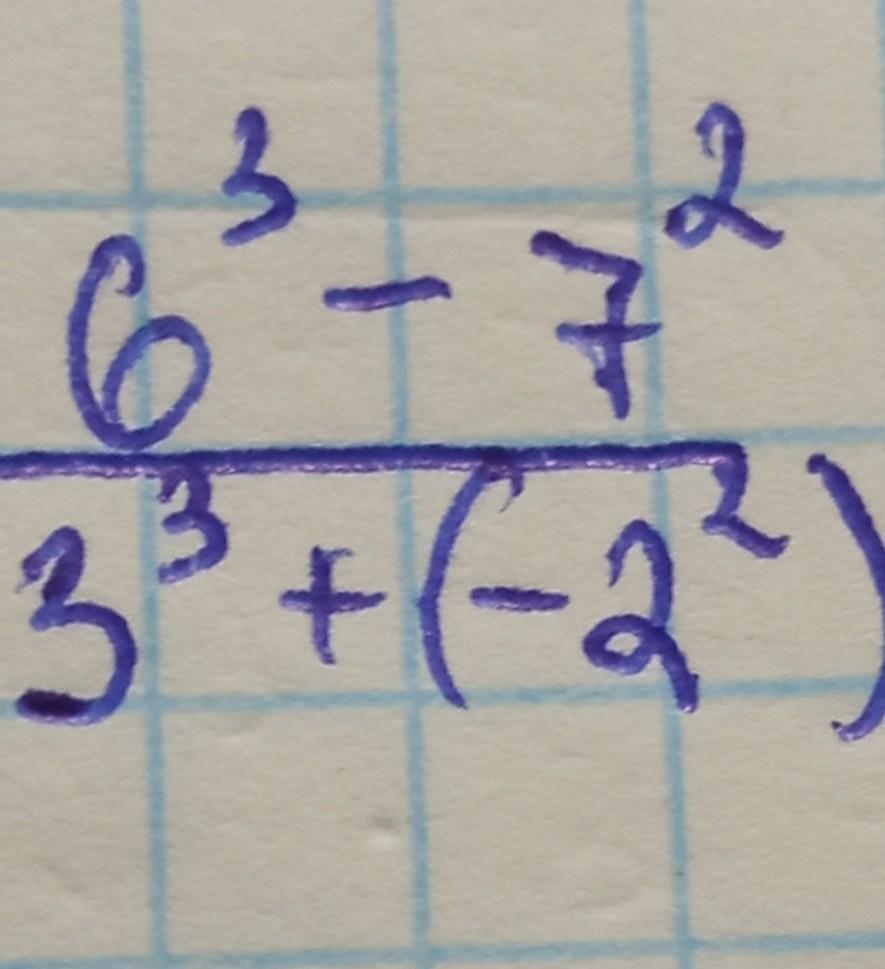 6³ - 7²
3³ + (-2²)